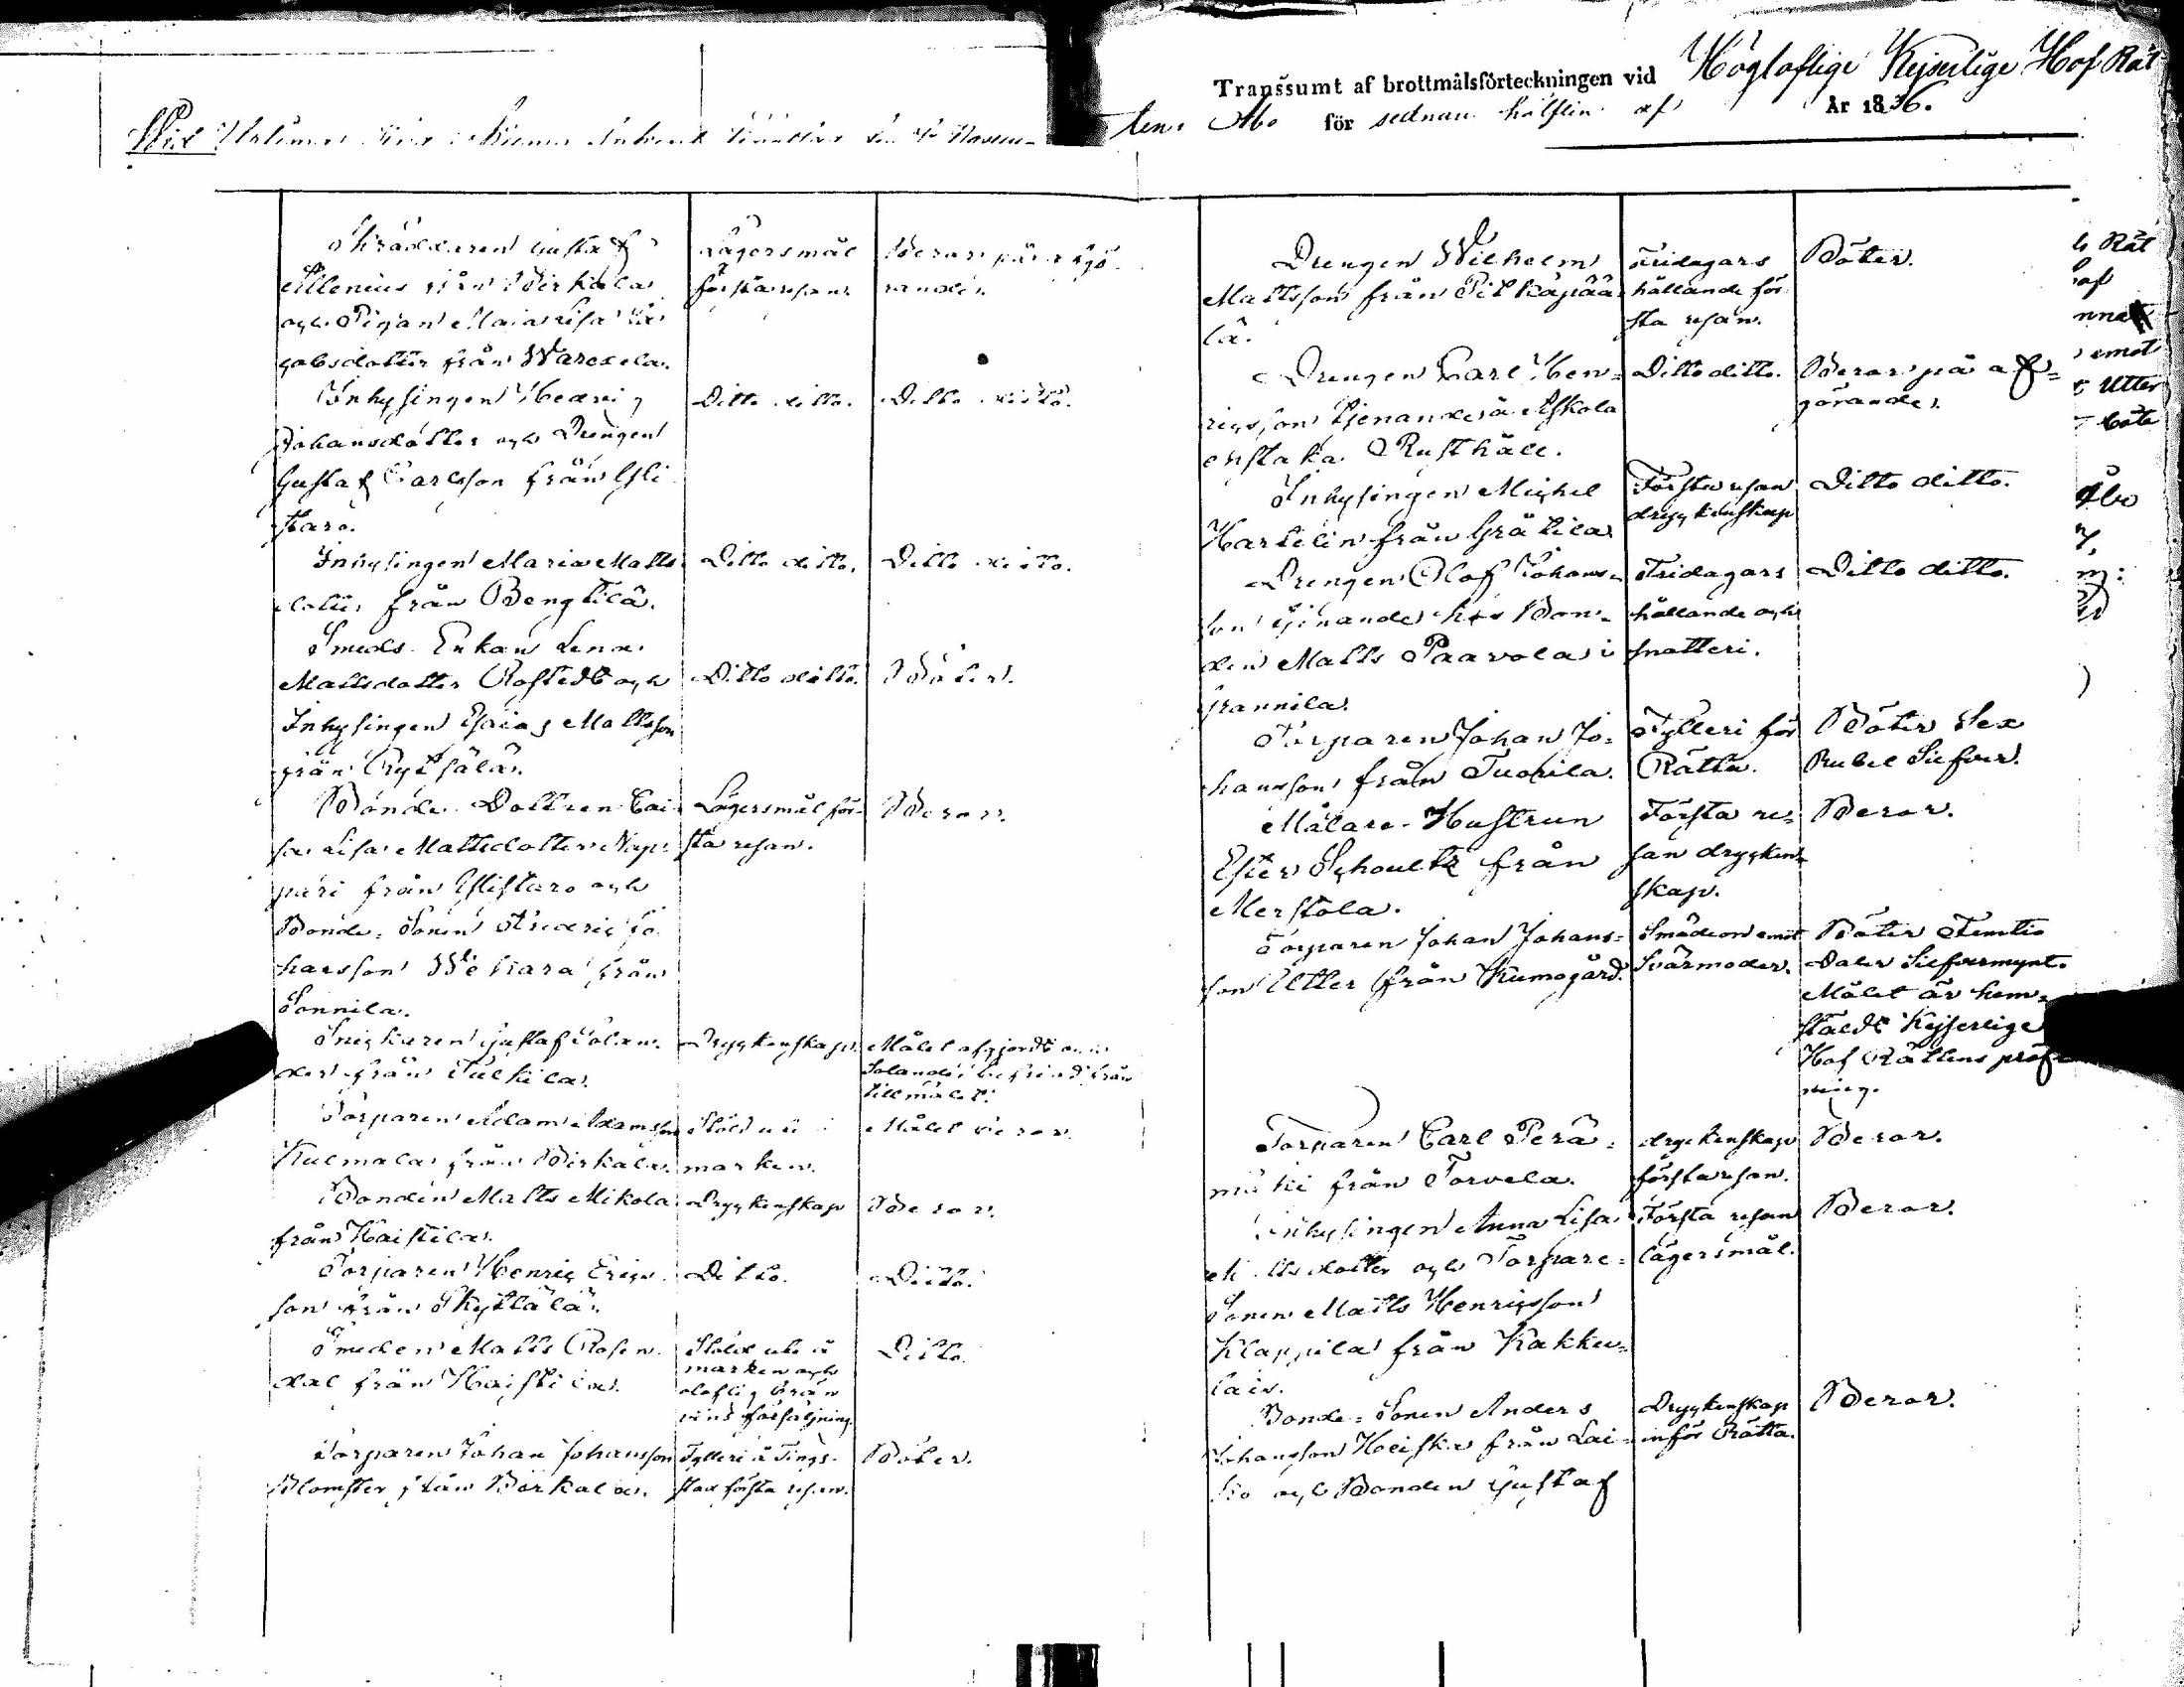 Transsumt af brottmålsförteckningen vid Högloflige Kejserlige Hof Rät
ten i Åbo för sednare hälften af År 1836.
Wid Ulfsunda
Skräddaren Gustaf
Allenius från Birkala
och Pigan Maia Lisa Ja
cobsdotter från Warexela.
Lägersmål
första resan.
Beror på afgö
rande.
Inhysingen Hedvig
Johansdotter och Drengen
Gustaf Carlsson från Isti
taro.
Ditto ditto.
Ditto ditto.
Inhysingen Maria Matts
dotter från Bengtilä.
Ditto ditto.
Ditto ditto.
Smeds Enkan Lena
Mattsdotter Rostedt och
Inhysingen Esaias Mattsson
från Rytsälä.
Ditto ditto.
Böter.
Bonde Dottren Cai
sa Lisa Mattsdotter Nap
pari från Ylistaro och
Bonde Sonen Fredric Jo
hansson Wekara från
Sonnila.
Lägersmål för
sta resan.
Beror.
Snickaren Gustaf Solan
der från Tulkila.
Dryckenskap.
Målet afgjordt och
Solander befriad från
tillmålet.
Torparen Adam Adamsson
Kulmala från Birkala.
Stöld ute i
marken.
Målet beror.
Bonden Matts Mikola
från Haistila.
Dryckenskap
Beror.
Torparen Henric Erics
son från Skyttälä.
Ditto.
Ditto.
Smeden Matts Rosen
dal från Haistila.
Stöld ute å
marken och
oloflig brän
vins försäljning.
Ditto.
Torparen Johan Johansson
Blomster från Birkala.
Fylleri å Tings
stad första resan.
Böter.
Drengen Wilhelm
Mattsson från Pitkäpää
lä.
Fridagars
hållande för
sta resan.
Böter.
Drengen Carl Hen=
ricsson tjenande å Askola
enstaka Rusthåll.
Ditto ditto.
Beror på af=
görande.
Inhysingen Michel
Harlelin från Grätila
Första resan
dryckenskap
Ditto ditto.
Drengen Olof Johans=
son tjenande hos Bon=
den Matts Paavola i
Grannila.
Fridagars
hållande och
snatteri.
Ditto ditto.
Torparen Johan Jo=
hansson från Tuorila.
Fylleri för
Rätta.
Böter Sex
Rubel Silfver.
Målare-Hustrun
Ester Schoultz från
Merstola.
Första re=
san drycken=
skap.
Beror.
Torparen Johan Johans=
son Utter från Kumogård.
Smädeord emot
Svärmoder.
Böter Femtio
Daler Silfvermynt.
Målet är hem=
stäldt Kejserlige
Hof Rättens pröf
ning.
Torparen Carl Perä=
mäki från Torvela.
dryckenskap
första resan.
Beror.
Inhysingen Anna Lisa
Mattsdotter och Torpare=
Sonen Matts Henricsson
Klappila från Kakku=
lais.
Första resan
lägersmål.
Beror.
Bonde=Sonen Anders
Johansson Heiska från Lai=
ko och Bonden Gustaf
Dryckenskap
inför Rätta.
Beror.